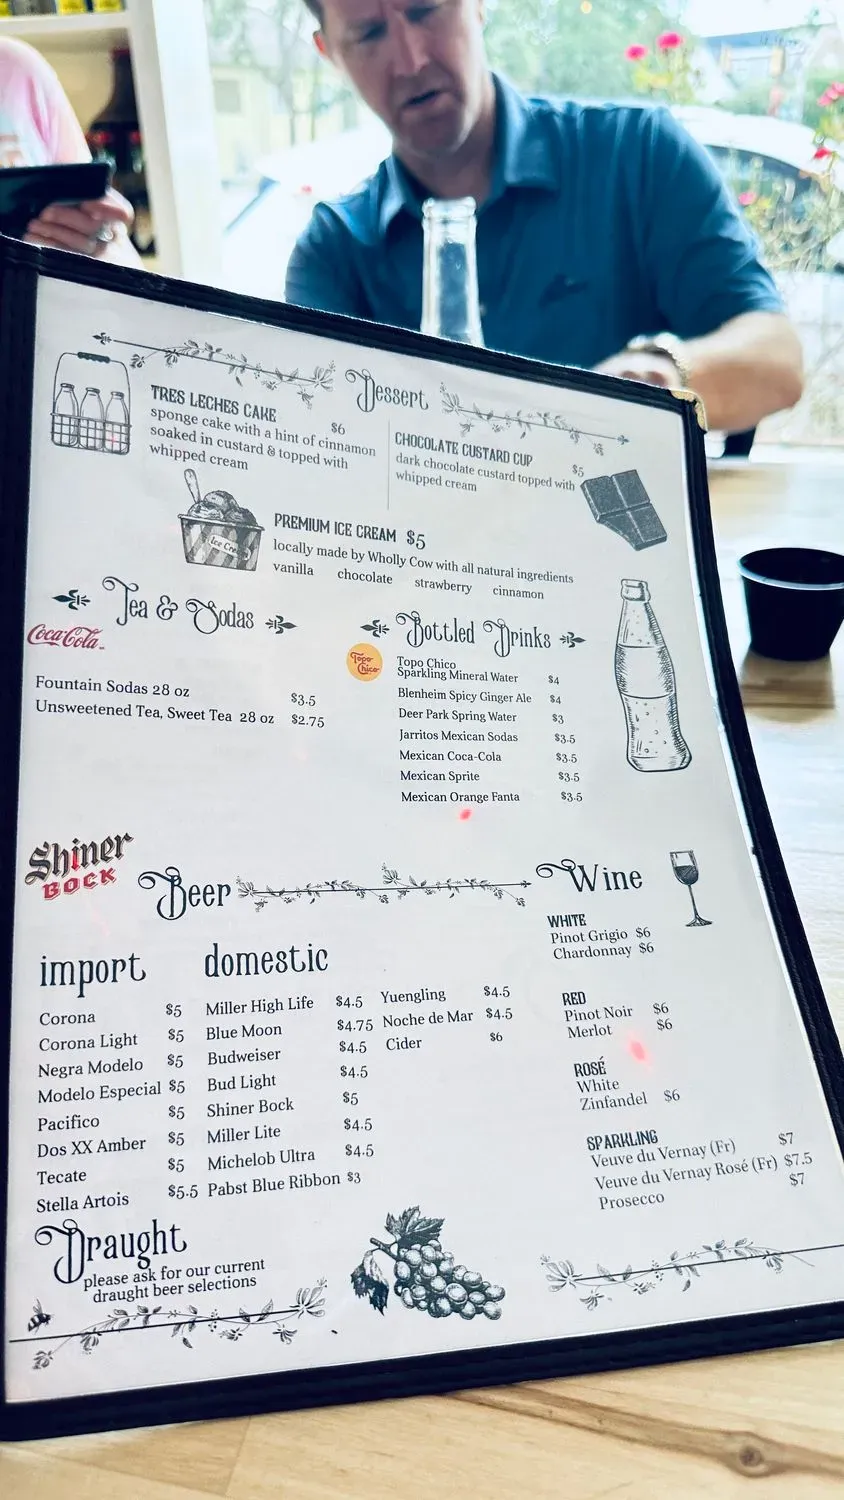 Dessert
TRES LECHES CAKE $6
sponge cake with a hint of cinnamon
soaked in custard & topped with
whipped cream
CHOCOLATE CUSTARD CUP $5
dark chocolate custard topped with
whipped cream
Ice Cream
PREMIUM ICE CREAM $5
locally made by Wholly Cow with all natural ingredients
vanilla chocolate strawberry cinnamon
Tea & Sodas
Coca-Cola
Fountain Sodas 28 oz $3.5
Unsweetened Tea, Sweet Tea 28 oz $2.75
Bottled Drinks
Topo
Chico
Topo Chico
Sparkling Mineral Water $4
Blenheim Spicy Ginger Ale $4
Deer Park Spring Water $3
Jarritos Mexican Sodas $3.5
Mexican Coca-Cola $3.5
Mexican Sprite $3.5
Mexican Orange Fanta $3.5
Shiner
BOCK
Beer
import
Corona $5
Corona Light $5
Negra Modelo $5
Modelo Especial $5
Pacifico $5
Dos XX Amber $5
Tecate $5
Stella Artois $5.5
domestic
Miller High Life $4.5
Blue Moon $4.75
Budweiser $4.5
Bud Light $4.5
Shiner Bock $5
Miller Lite $4.5
Michelob Ultra $4.5
Pabst Blue Ribbon $3
Yuengling $4.5
Noche de Mar $4.5
Cider $6
Wine
WHITE
Pinot Grigio $6
Chardonnay $6
RED
Pinot Noir $6
Merlot $6
ROSÉ
White
Zinfandel $6
SPARKLING
Veuve du Vernay (Fr) $7
Veuve du Vernay Rosé (Fr) $7.5
Prosecco $7
Draught
please ask for our current
draught beer selections